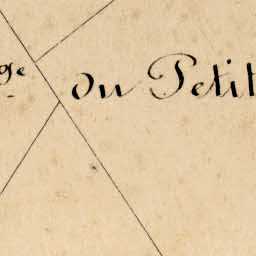 ge ou Petit